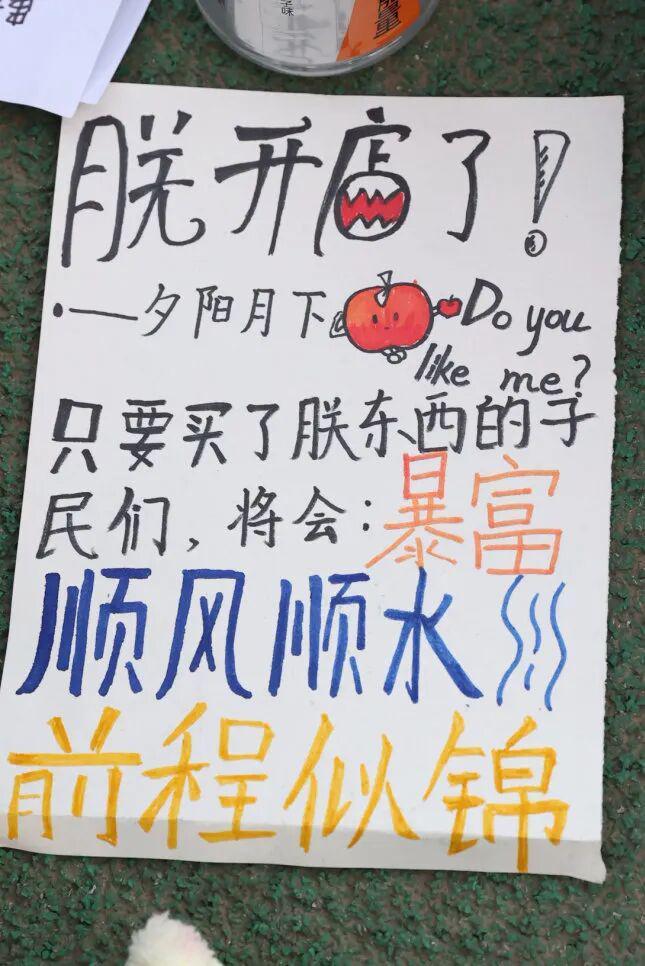 味
能量
朕开店了!
·—夕阳月下
Do you
like me?
只要买了朕东西的子
民们,将会:暴富
顺风顺水
前程似锦